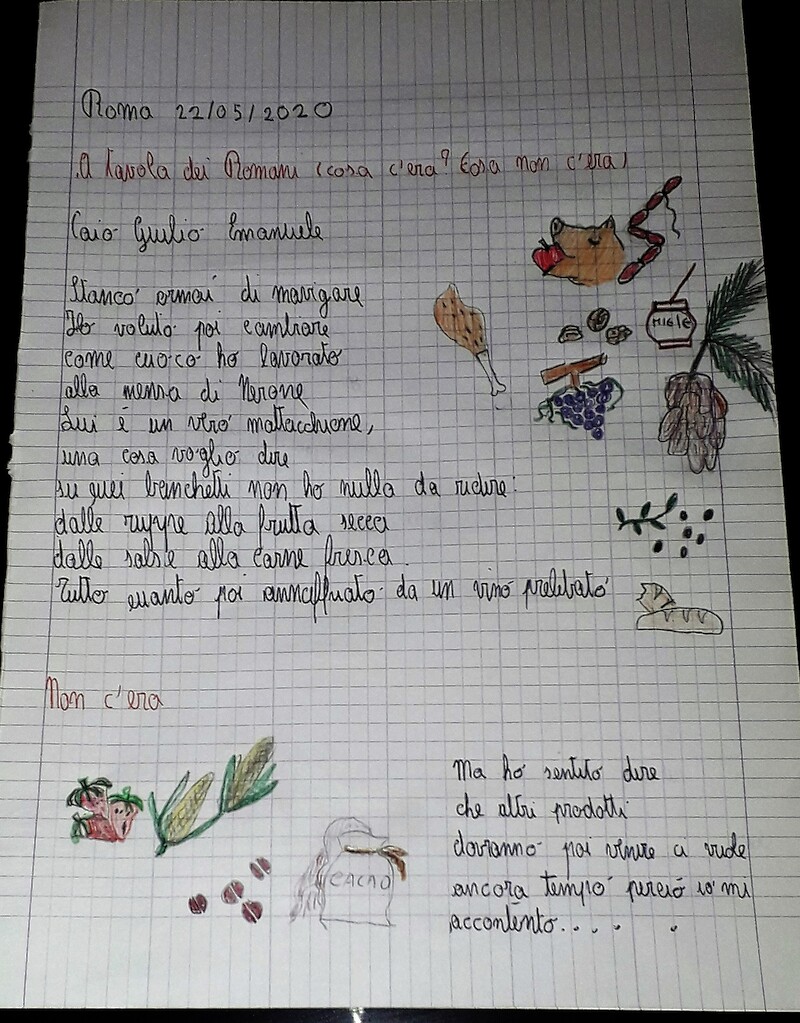 Roma 22/05/2020
A tavola dei Romani (cosa c'era? Cosa non c'era)
Caio Giulio Emanuele
Stanco ormai di navigare
Ho voluto poi cambiare
come cuoco ho lavorato
alla mensa di Nerone
Lui è un vero mattacchione,
una cosa voglio dire
su quei banchetti non ho nulla da ridire:
dalle zuppe alla frutta secca
dalle salse alla carne fresca.
Tutto quanto poi annaffiato da un vino prelibato
MIELE
Non c'era
CACAO
Ma ho sentito dire
che altri prodotti
dovranno poi venire ci vuole
ancora tempo perciò io mi
accontento.....